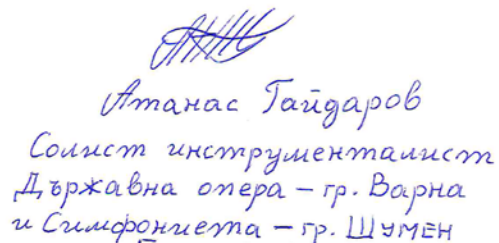 Атанас Гайдаров
Солист инструменталист
Държавна опера – гр. Варна
и Симфониета – гр. Шумен